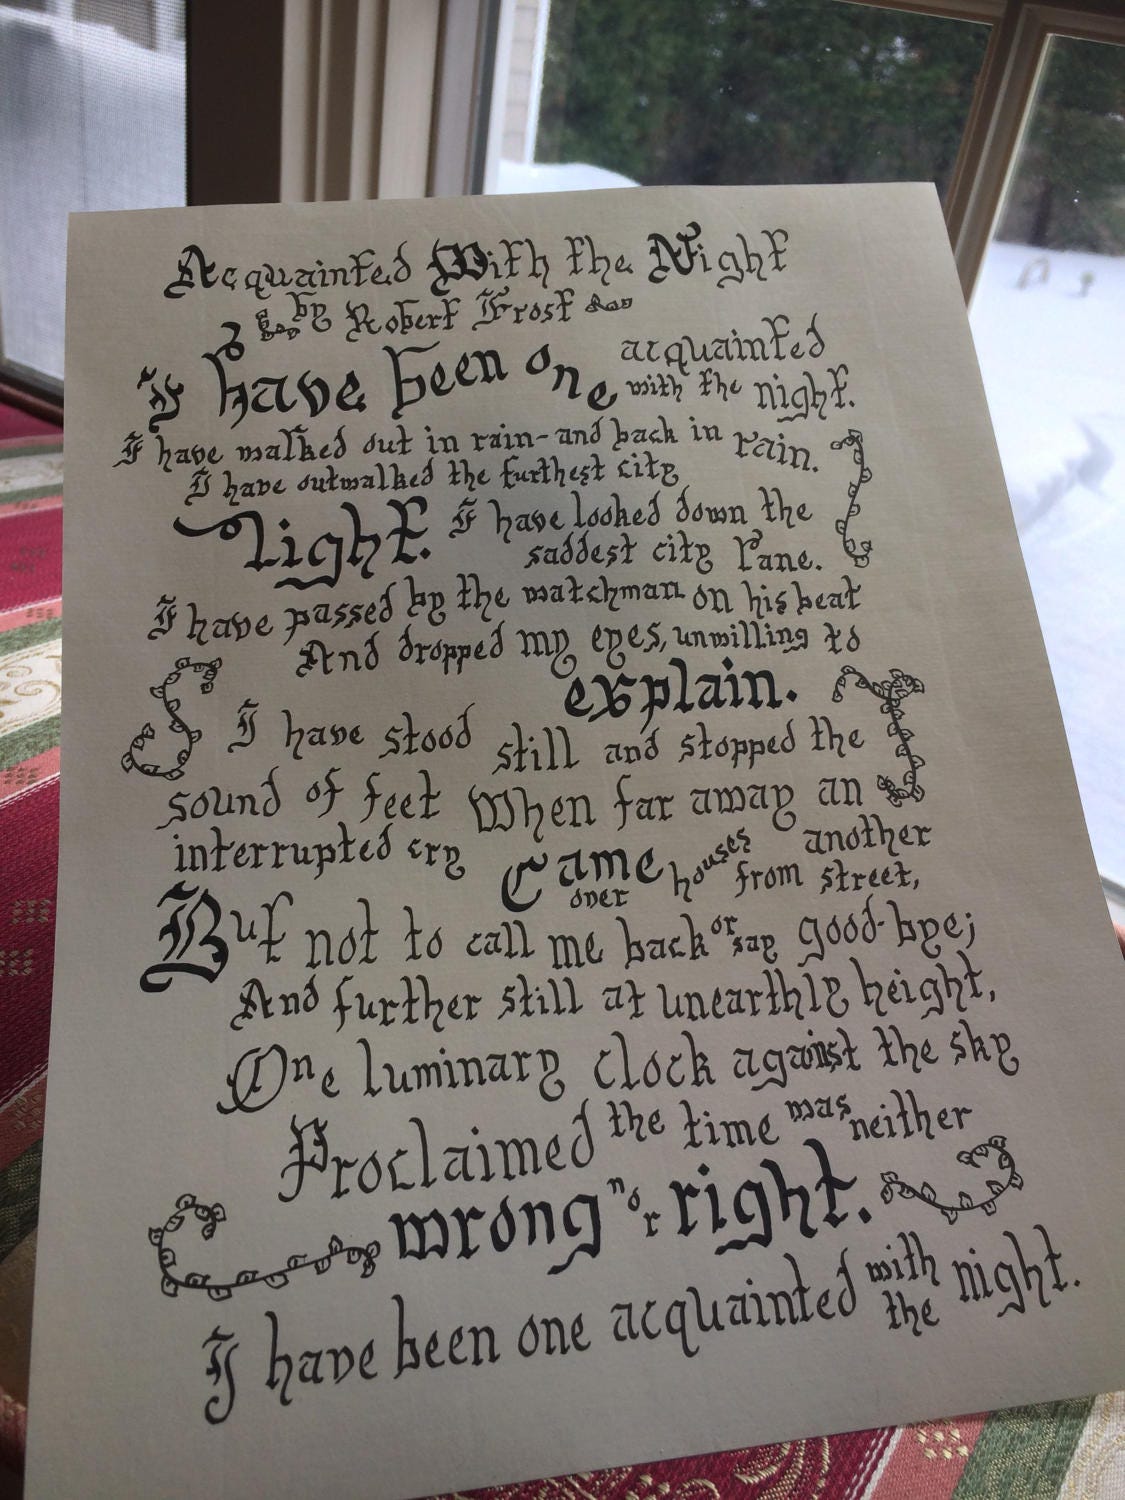 Acquainted With the Night
by Robert Frost
I have been one acquainted
with the night.
I have walked out in rain-and back in rain.
I have outwalked the furthest city
light. I have looked down the
saddest city lane.
I have passed by the watchman on his beat
And dropped my eyes, unwilling to
explain.
I have stood still and stopped the
sound of feet When far away an
interrupted cry Came over houses from another
street,
But not to call me back or say good-bye;
And further still at unearthly height,
One luminary clock against the sky
Proclaimed the time was neither
wrong nor right.
I have been one acquainted with the night.